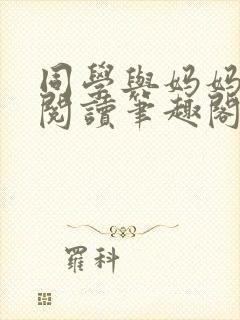 同學與媽媽
閱讀筆趣閣
羅科